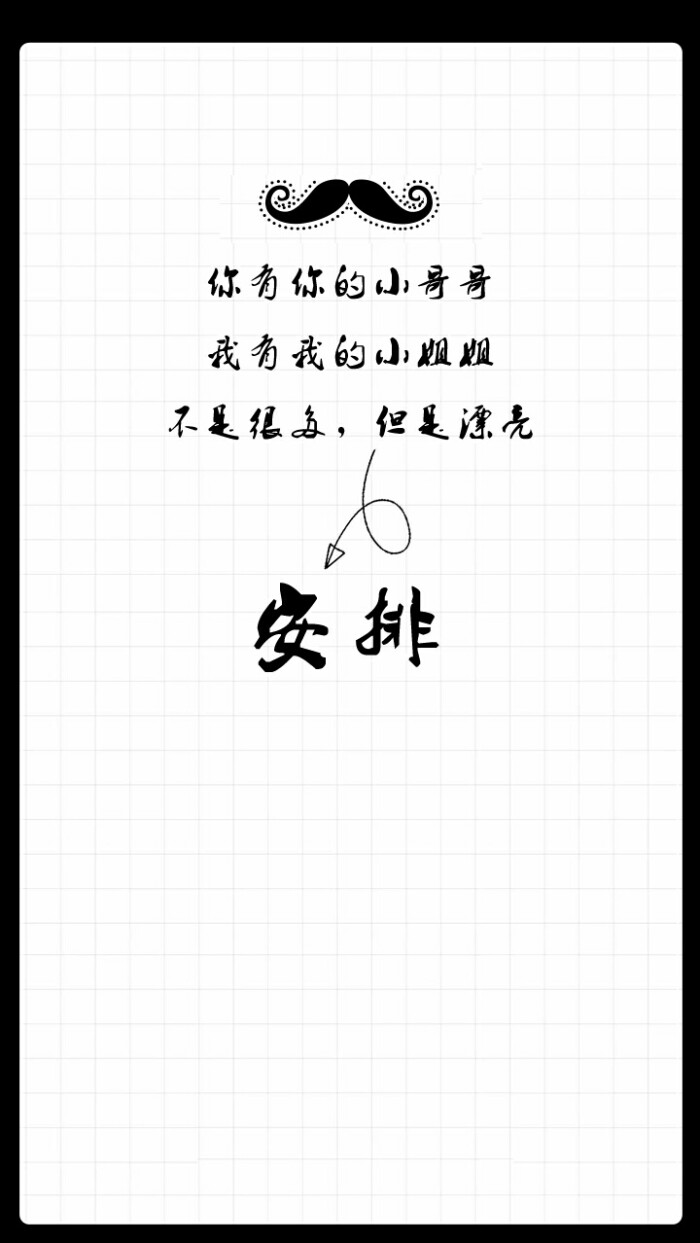 你有你的小哥哥
我有我的小姐姐
不是很多，但是漂亮
安排